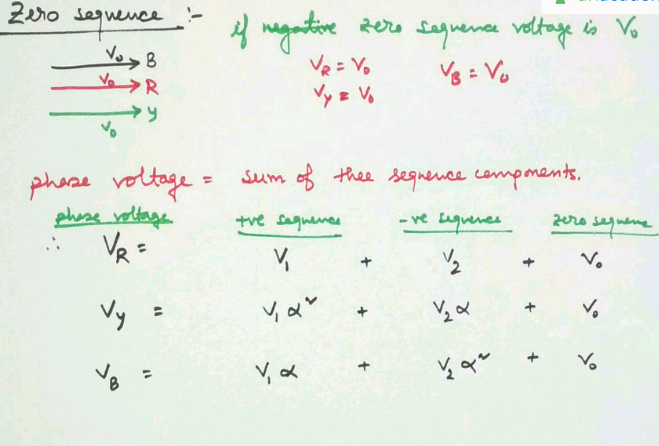 Zero sequence :-
if negative zero sequence voltage is V₀
V₀ B
V₀ R
V₀ y
V_R = V₀ V_B = V₀
V_y = V₀
phase voltage = sum of thee sequence components.
phase voltage +ve sequence -ve sequence zero sequence
∴ V_R = V₁ + V₂ + V₀
V_y = V₁ α² + V₂ α + V₀
V_B = V₁ α + V₂ α² + V₀